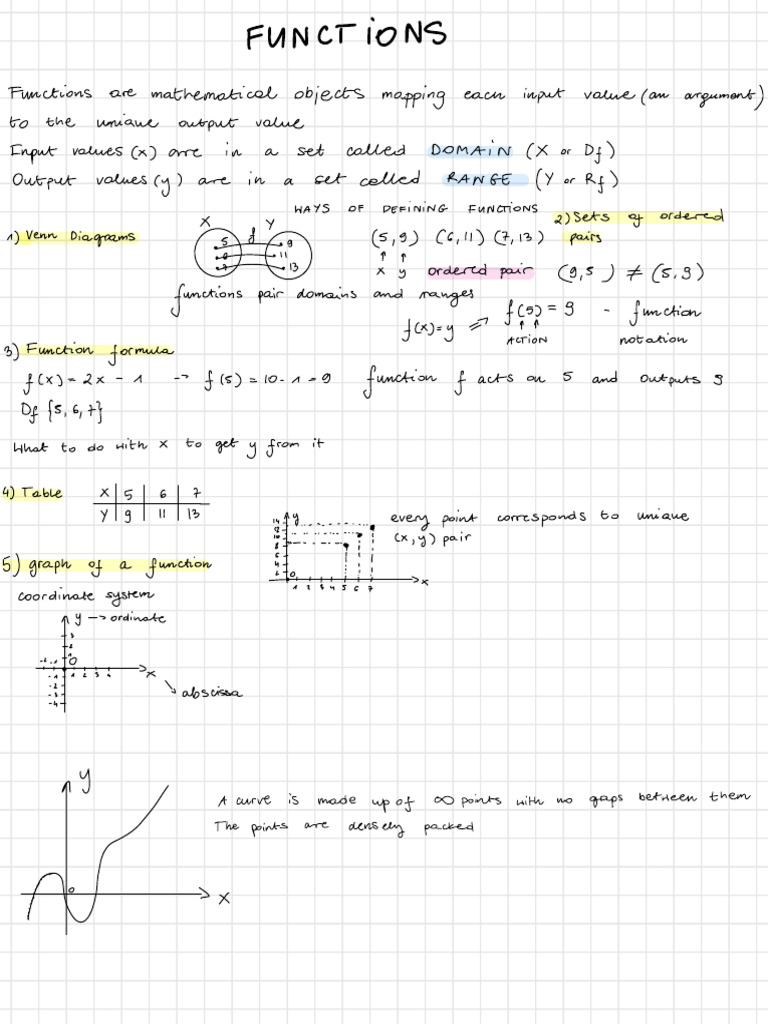 FUNCTIONS
Functions are mathematical objects mapping each input value (an argument)
to the unique output value
Input values (x) are in a set called DOMAIN (X or Df)
Output values (y) are in a set called RANGE (Y or Rf)
WAYS OF DEFINING FUNCTIONS
1) Venn Diagrams
X f Y
5 9
6 11
7 13
2) Sets of ordered
pairs
(5,9) (6,11) (7,13)
x y ordered pair (9,5) ≠ (5,9)
functions pair domains and ranges
f(x)=y => f(5) = 9 - function
ACTION notation
3) Function formula
f(x) = 2x - 1 -> f(5) = 10 - 1 = 9 function f acts on 5 and outputs 9
Df {5,6,7}
What to do with x to get y from it
4) Table
X | 5 | 6 | 7
Y | 9 | 11 | 13
y
14
12
10
8
6
4
2
0
1 2 3 4 5 6 7
x
every point corresponds to unique
(x,y) pair
5) graph of a function
coordinate system
y -> ordinate
3
2
1
-2 -1 0 1 2 3 4 x
-1
-2
-3
-4
abscissa
y
0
x
A curve is made up of ∞ points with no gaps between them
The points are densely packed